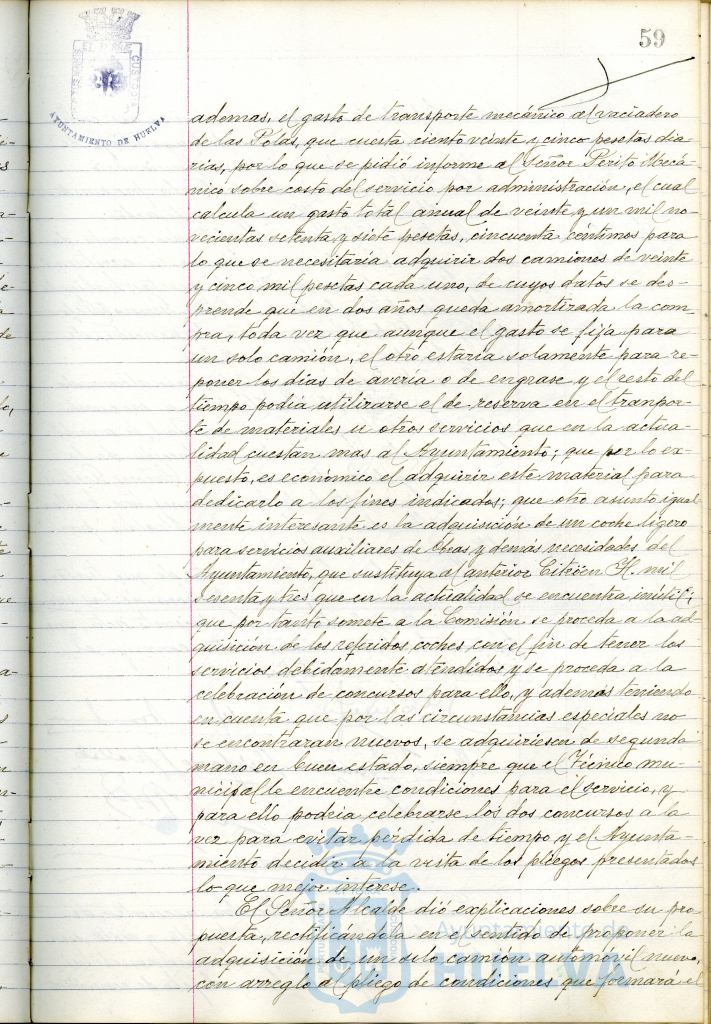 59
AYUNTAMIENTO DE HUELVA
ademas, el gasto de transporte mecánico al vaciadero
de las Polas, que cuesta ciento veinte y cinco pesetas dia-
rias, por lo que se pidió informe al Señor Perito Mecá-
nico sobre costo del servicio por administración, el cual
calcula un gasto total anual de veinte y un mil no-
vecientas setenta y siete pesetas, cincuenta céntimos para
lo que se necesitaria adquirir dos camiones de veinte
y cinco mil pesetas cada uno, de cuyos datos se des-
prende que en dos años queda amortizada la com-
pra, toda vez que aunque el gasto se fija para
un solo camión, el otro estaria solamente para re-
poner los dias de avería o de engrase y el resto del
tiempo podia utilizarse el de reserva en el tranpor-
te de materiales u otros servicios que en la actua-
lidad cuestan mas al Ayuntamiento; que por lo ex-
puesto, es económico el adquirir este material para
dedicarlo a los fines indicados; que otro asunto igual
mente interesante es la adquisición de un coche ligero
para servicios auxiliares de Obras y demás necesidades del
Ayuntamiento, que sustituya al anterior Citröen H. mil
sesenta y tres que en la actualidad se encuentra inutil;
que por tanto somete a la Comisión se proceda a la ad-
quisición de los referidos coches con el fin de tener los
servicios debidamente atendidos y se proceda a la
celebración de concursos para ello, y ademas teniendo
en cuenta que por las circunstancias especiales no
se encontraran nuevos, se adquiriesen de segunda
mano en buen estado, siempre que el Técnico mu-
nicipal le encuentre condiciones para el servicio, y
para ello podria celebrarse los dos concursos a la
vez para evitar pérdida de tiempo y el Ayunta-
miento decidir a la vista de los pliegos presentados
lo que mejor interese.
El Señor Alcalde dió explicaciones sobre su pro-
puesta, rectificándola en el sentido de proponer la
adquisición de un solo camión automóvil nuevo,
con arreglo al pliego de condiciones que formará el
Ayuntamiento de
HUELVA